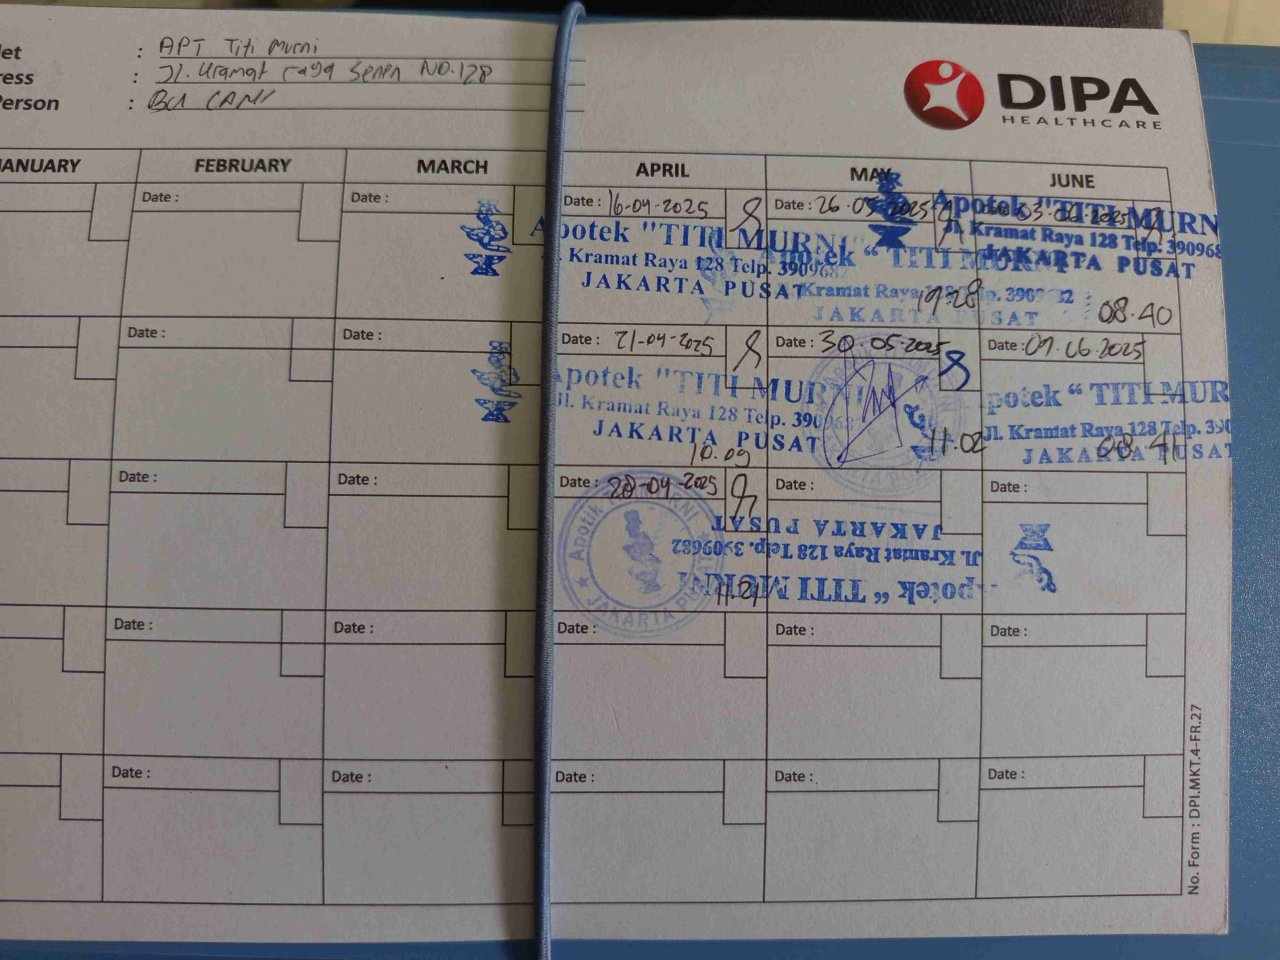 et : APT Titi Murni
ress : Jl. Kramat raya Senen NO.128
Person : BU
DIPA
HEALTHCARE
ANUARY FEBRUARY MARCH APRIL MAY JUNE
Date : Date : Date : 16-04-2025 Date : 26.05.2025 03.06.2025
Apotek "TITI MURNI"
Jl. Kramat Raya 128 Telp. 3909682
JAKARTA PUSAT
Apotek “ TITI MURNI
Kramat Raya 128 Telp. 3909682
JAKARTA PUSAT
Apotek "TITI MURN
Jl. Kramat Raya 128 Telp. 390968
JAKARTA PUSAT
19.28 08.40
Date : Date : Date : 21-04-2025 Date : 30.05.2025 Date : 09.06.2025
Apotek "TITI MURNI
Jl. Kramat Raya 128 Telp. 39096
JAKARTA PUSAT
10.09
11.02
potek “ TITI MUR
Jl. Kramat Raya 128 Telp. 390
JAKARTA PUSAT
08.41
Date : Date : Date : 28-04-2025 Date : Date :
Apotik TITI MURNI
JAKARTA PUSAT
Apotek “ TITI MURNI
Jl. Kramat Raya 128 Telp. 3909682
JAKARTA PUSAT
11.21
Date : Date : Date : Date : Date :
Date : Date : Date : Date : Date :
No. Form : DPI.MKT.4-FR.27